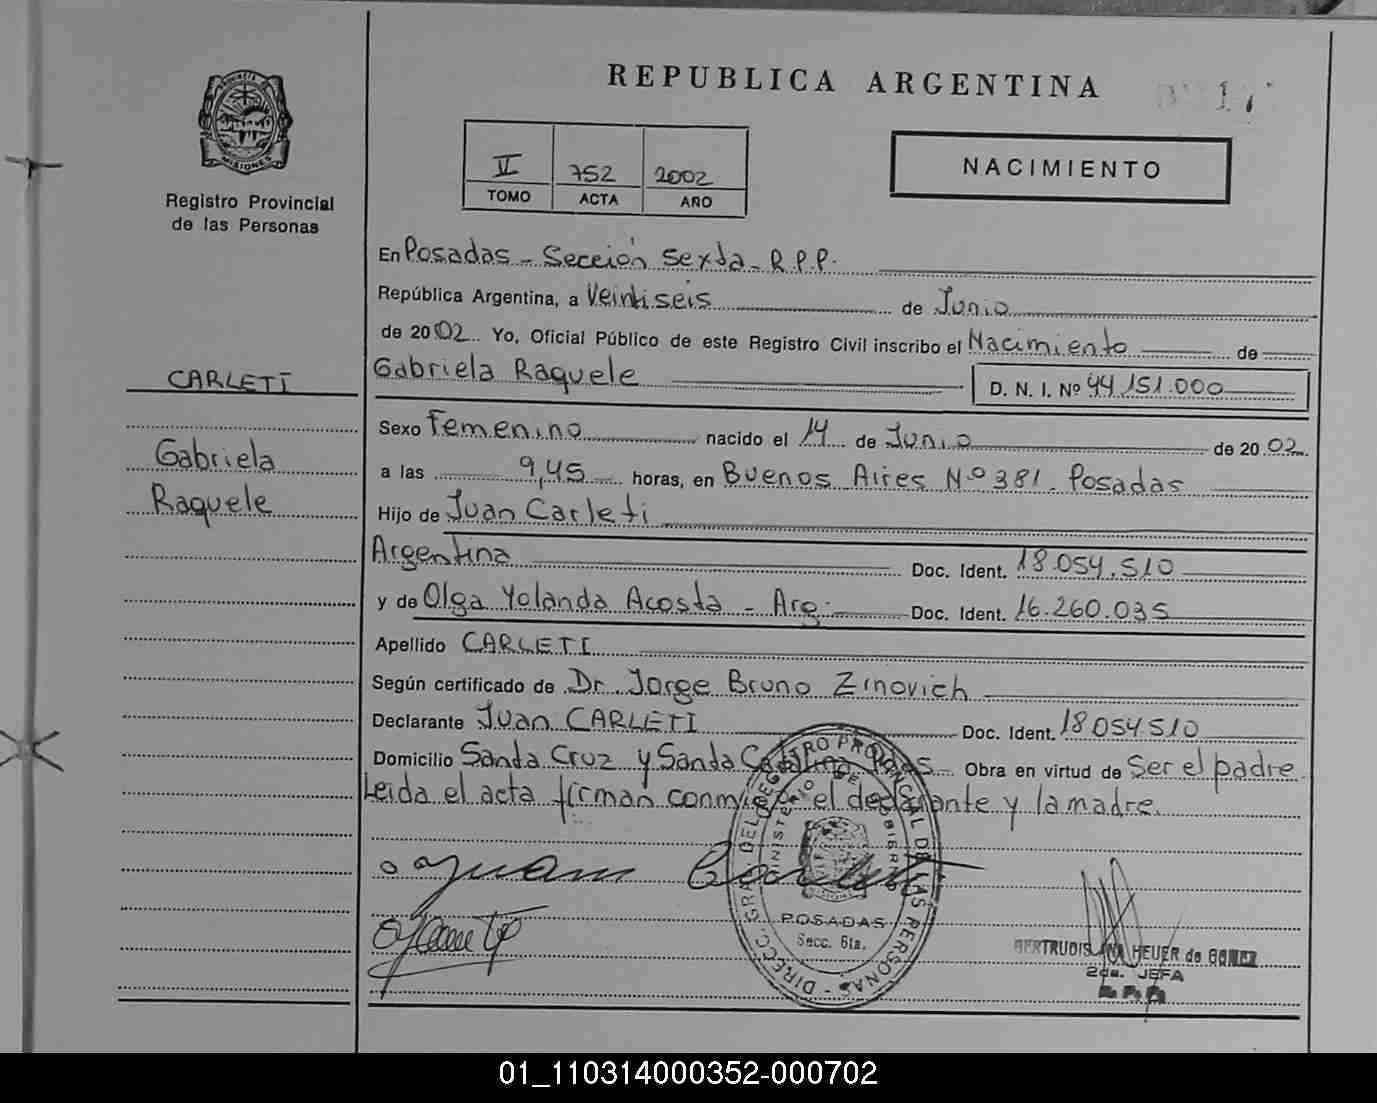 REPUBLICA ARGENTINA
MISIONES
Registro Provincial
de las Personas
II 752 2002
TOMO ACTA AÑO
NACIMIENTO
En Posadas - Sección Sexta - R.P.P.
República Argentina, a Veintiseis de Junio
de 2002 Yo, Oficial Público de este Registro Civil inscribo el Nacimiento de
Gabriela Raquele D. N. I. Nº 44.151.000
CARLETI
Gabriela
Raquele
Sexo Femenino nacido el 14 de Junio de 2002
a las 9,45 horas, en Buenos Aires Nº 381 - Posadas
Hijo de Juan Carleti
Argentina Doc. Ident. 18.054.510
y de Olga Yolanda Acosta - Arg. Doc. Ident. 16.260.035
Apellido CARLETI
Según certificado de Dr. Jorge Bruno Zinovich
Declarante Juan CARLETI Doc. Ident. 18054510
Domicilio Santa Cruz y Santa Catalina Pdas. Obra en virtud de Ser el padre.
Leida el acta firman conmigo el declarante y la madre.
DIRECC. GRAL. DEL REGISTRO PROVINCIAL DE LAS PERSONAS
MINISTERIO DE GOBIERNO
POSADAS
Secc. 6ta.
Juan Carleti
GERTRUDIS ANA HEUER de GOMEZ
2da. JEFA
R.P.P.
01_110314000352-000702